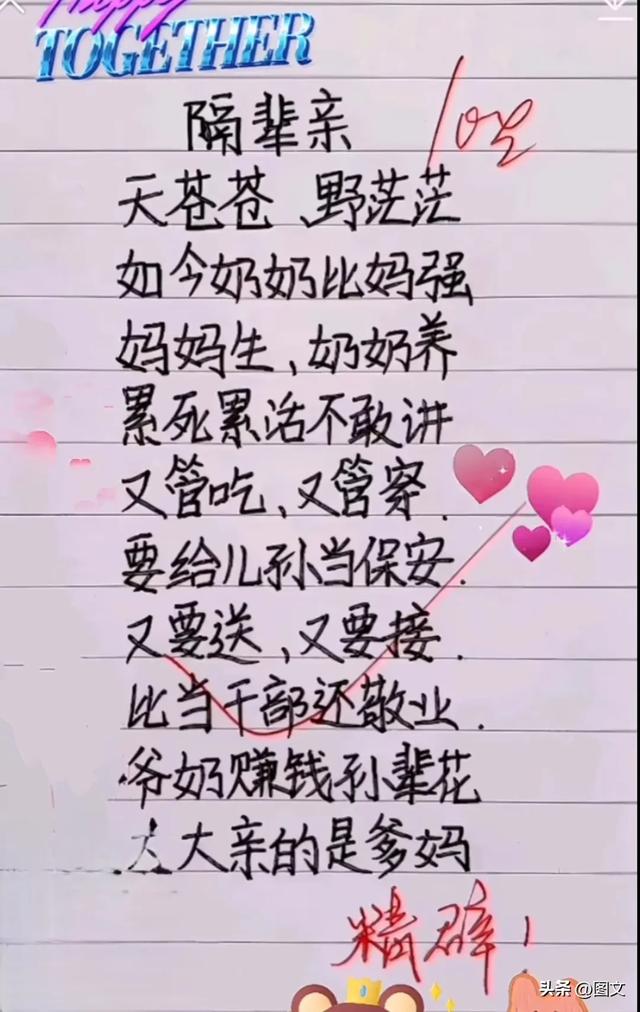 Happy
TOGETHER
隔辈亲
天苍苍、野茫茫
如今奶奶比妈强
妈妈生、奶奶养
累死累活不敢讲
又管吃、又管穿.
要给儿孙当保安.
又要送、又要接.
比当干部还敬业.
爷奶赚钱孙辈花
大亲的是爹妈
精辟!
头条 @图文